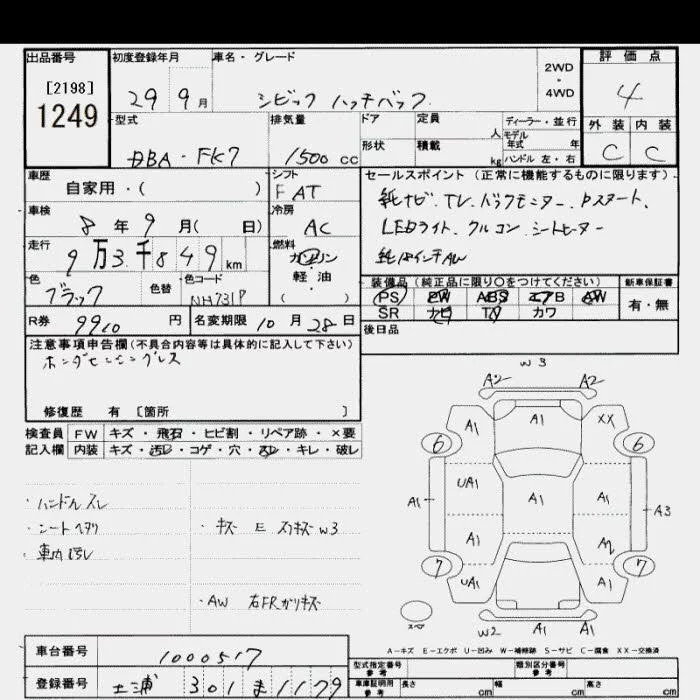 出品番号 初度登録年月 車名・グレード 2WD・4WD 評価点
[2198]
1249
29 9月 シビック ハッチバック 4
型式 排気量 ドア 定員 人 ディーラー・並行 外装 内装
モデル年式 年
DBA-FK7 1500cc 形状 積載 kg ハンドル 左・右 C C
車歴 シフト セールスポイント(正常に機能するものに限ります)
自家用・( ) F AT
純ナビ、TV、バックモニター、Pスタート、
車検 冷房
8年 9月( 日) AC
LEDライト、クルコン、シートヒーター
走行 燃料
9万3千849km ガソリン
軽・油
( )
純18インチAW
色 色替 色コード
ブラック NH731P
装備品(純正品に限り○をつけてください) 新車保証書
PS PW ABS エアB AW 有・無
SR ナビ TV カワ
R券 9910円 名変期限 10月28日
後日品
注意事項申告欄(不具合内容等は具体的に記入して下さい)
ホンダセンシングレス
修復歴 有 [箇所 ]
検査員 FW キズ・飛石・ヒビ割・リペア跡・×要
記入欄 内装 キズ・汚レ・コゲ・穴・スレ・キレ・破レ
W3
A2 A2
A1 A1 XX
6 6
UA1 A1 A1
A1 A3
A1 A2
7 7
UA1 A1 A1
スペア
W2 A1 A1
・ハンドルスレ
・シートヘタリ
・車内汚レ
・キズ E スリキズ W3
・AW 右FRガリキズ
A-キズ E-エクボ U-凹み W-補修跡 S-サビ C-腐食 XX-交換済
車台番号 1000517
登録番号 土浦 301 ま 1179
型式指定番号 参考 類別区分番号 参考
車庫証明用 参考 長さ cm 幅 cm 高さ cm